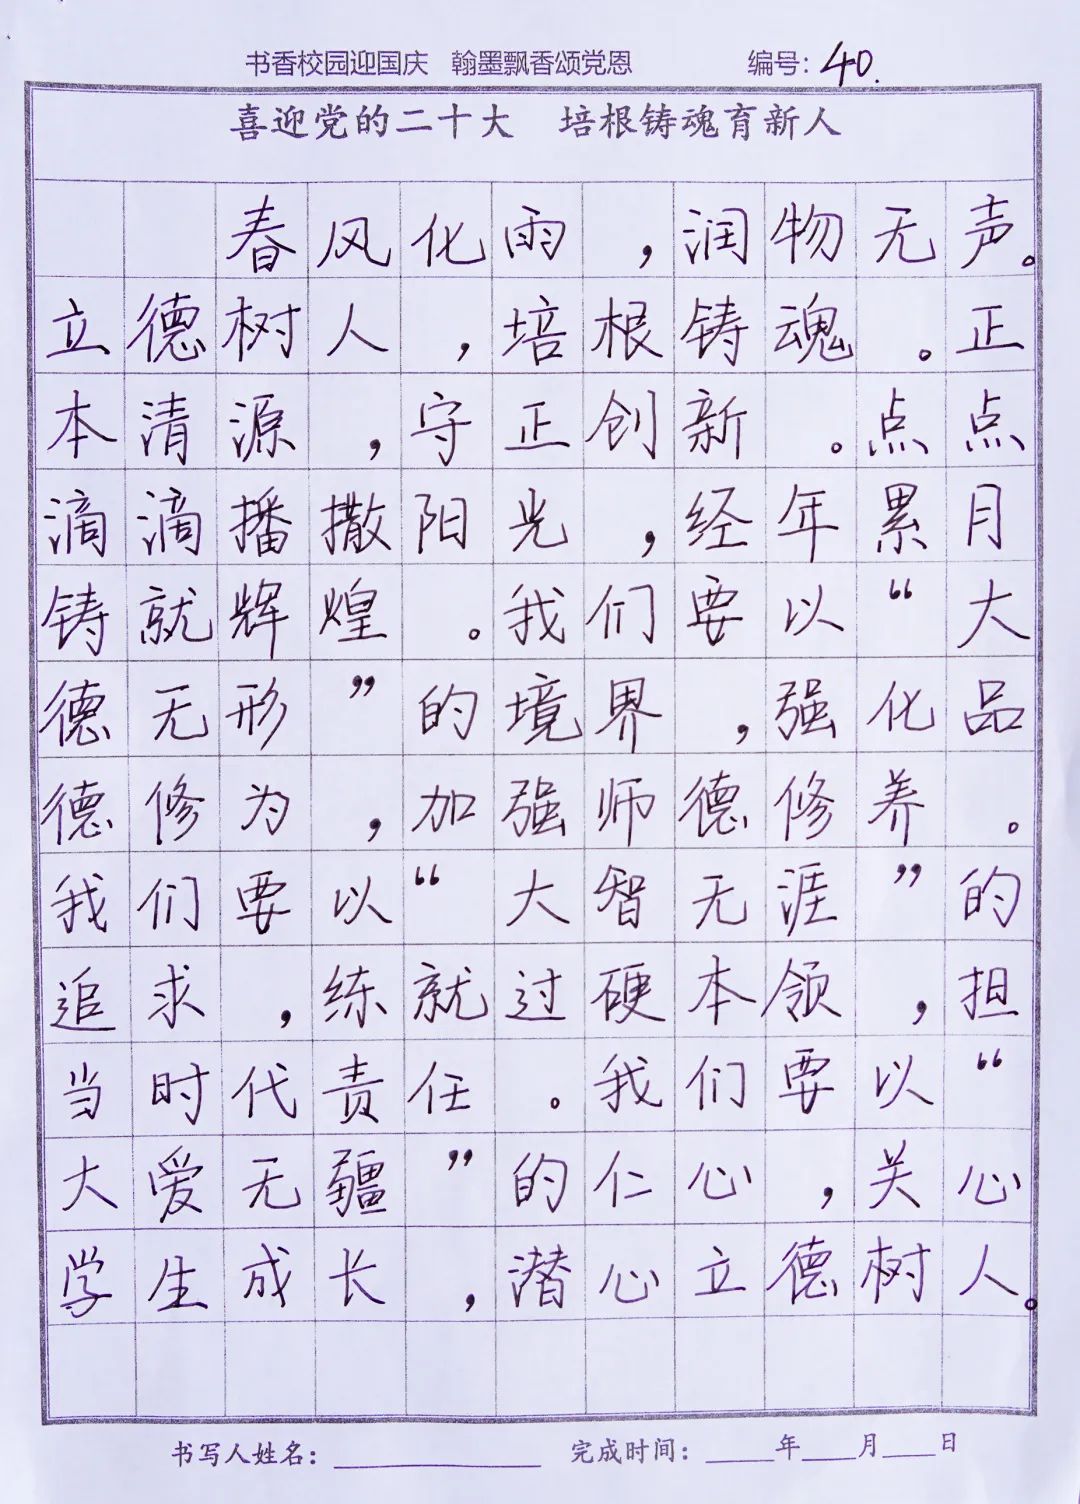 书香校园迎国庆 翰墨飘香颂党恩 编号：40.
喜迎党的二十大 培根铸魂育新人
春风化雨，润物无声。
立德树人，培根铸魂。正
本清源，守正创新。点点
滴滴播撒阳光，经年累月
铸就辉煌。我们要以“大
德无形”的境界，强化品
德修为，加强师德修养。
我们要以“大智无涯”的
追求，练就过硬本领，担
当时代责任。我们要以“
大爱无疆”的仁心，关心
学生成长，潜心立德树人。
书写人姓名：__________ 完成时间：_____年____月____日